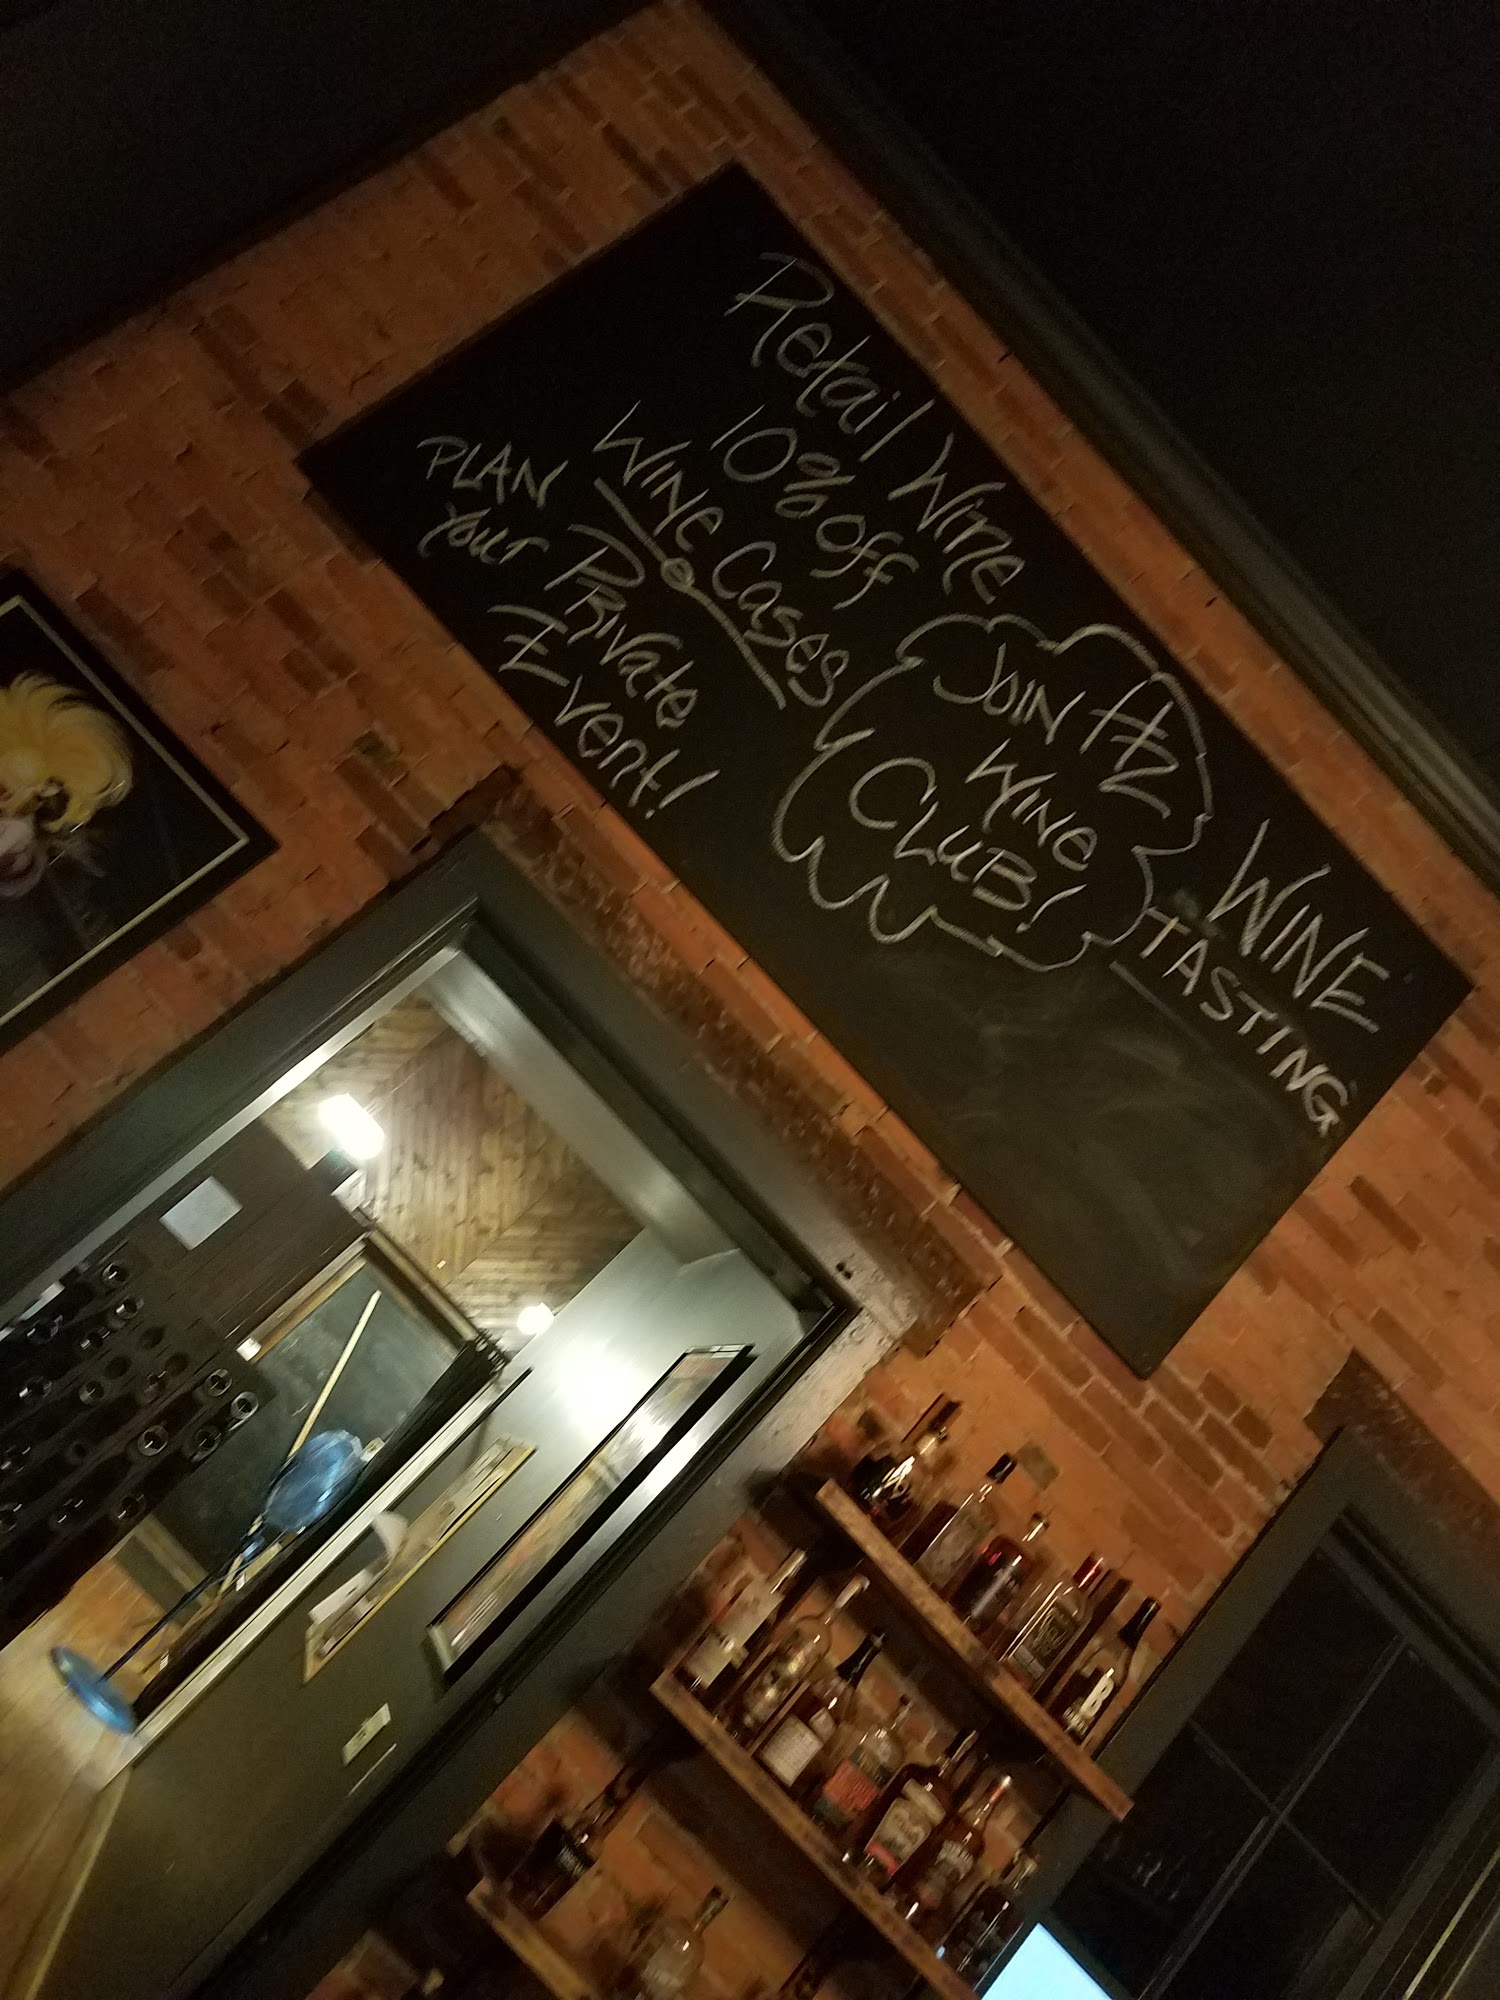 Retail Wine
10% off
Wine Cases
PLAN
Your Private
Event!
JOIN HZ
WINE
CLUB!
WINE
TASTING